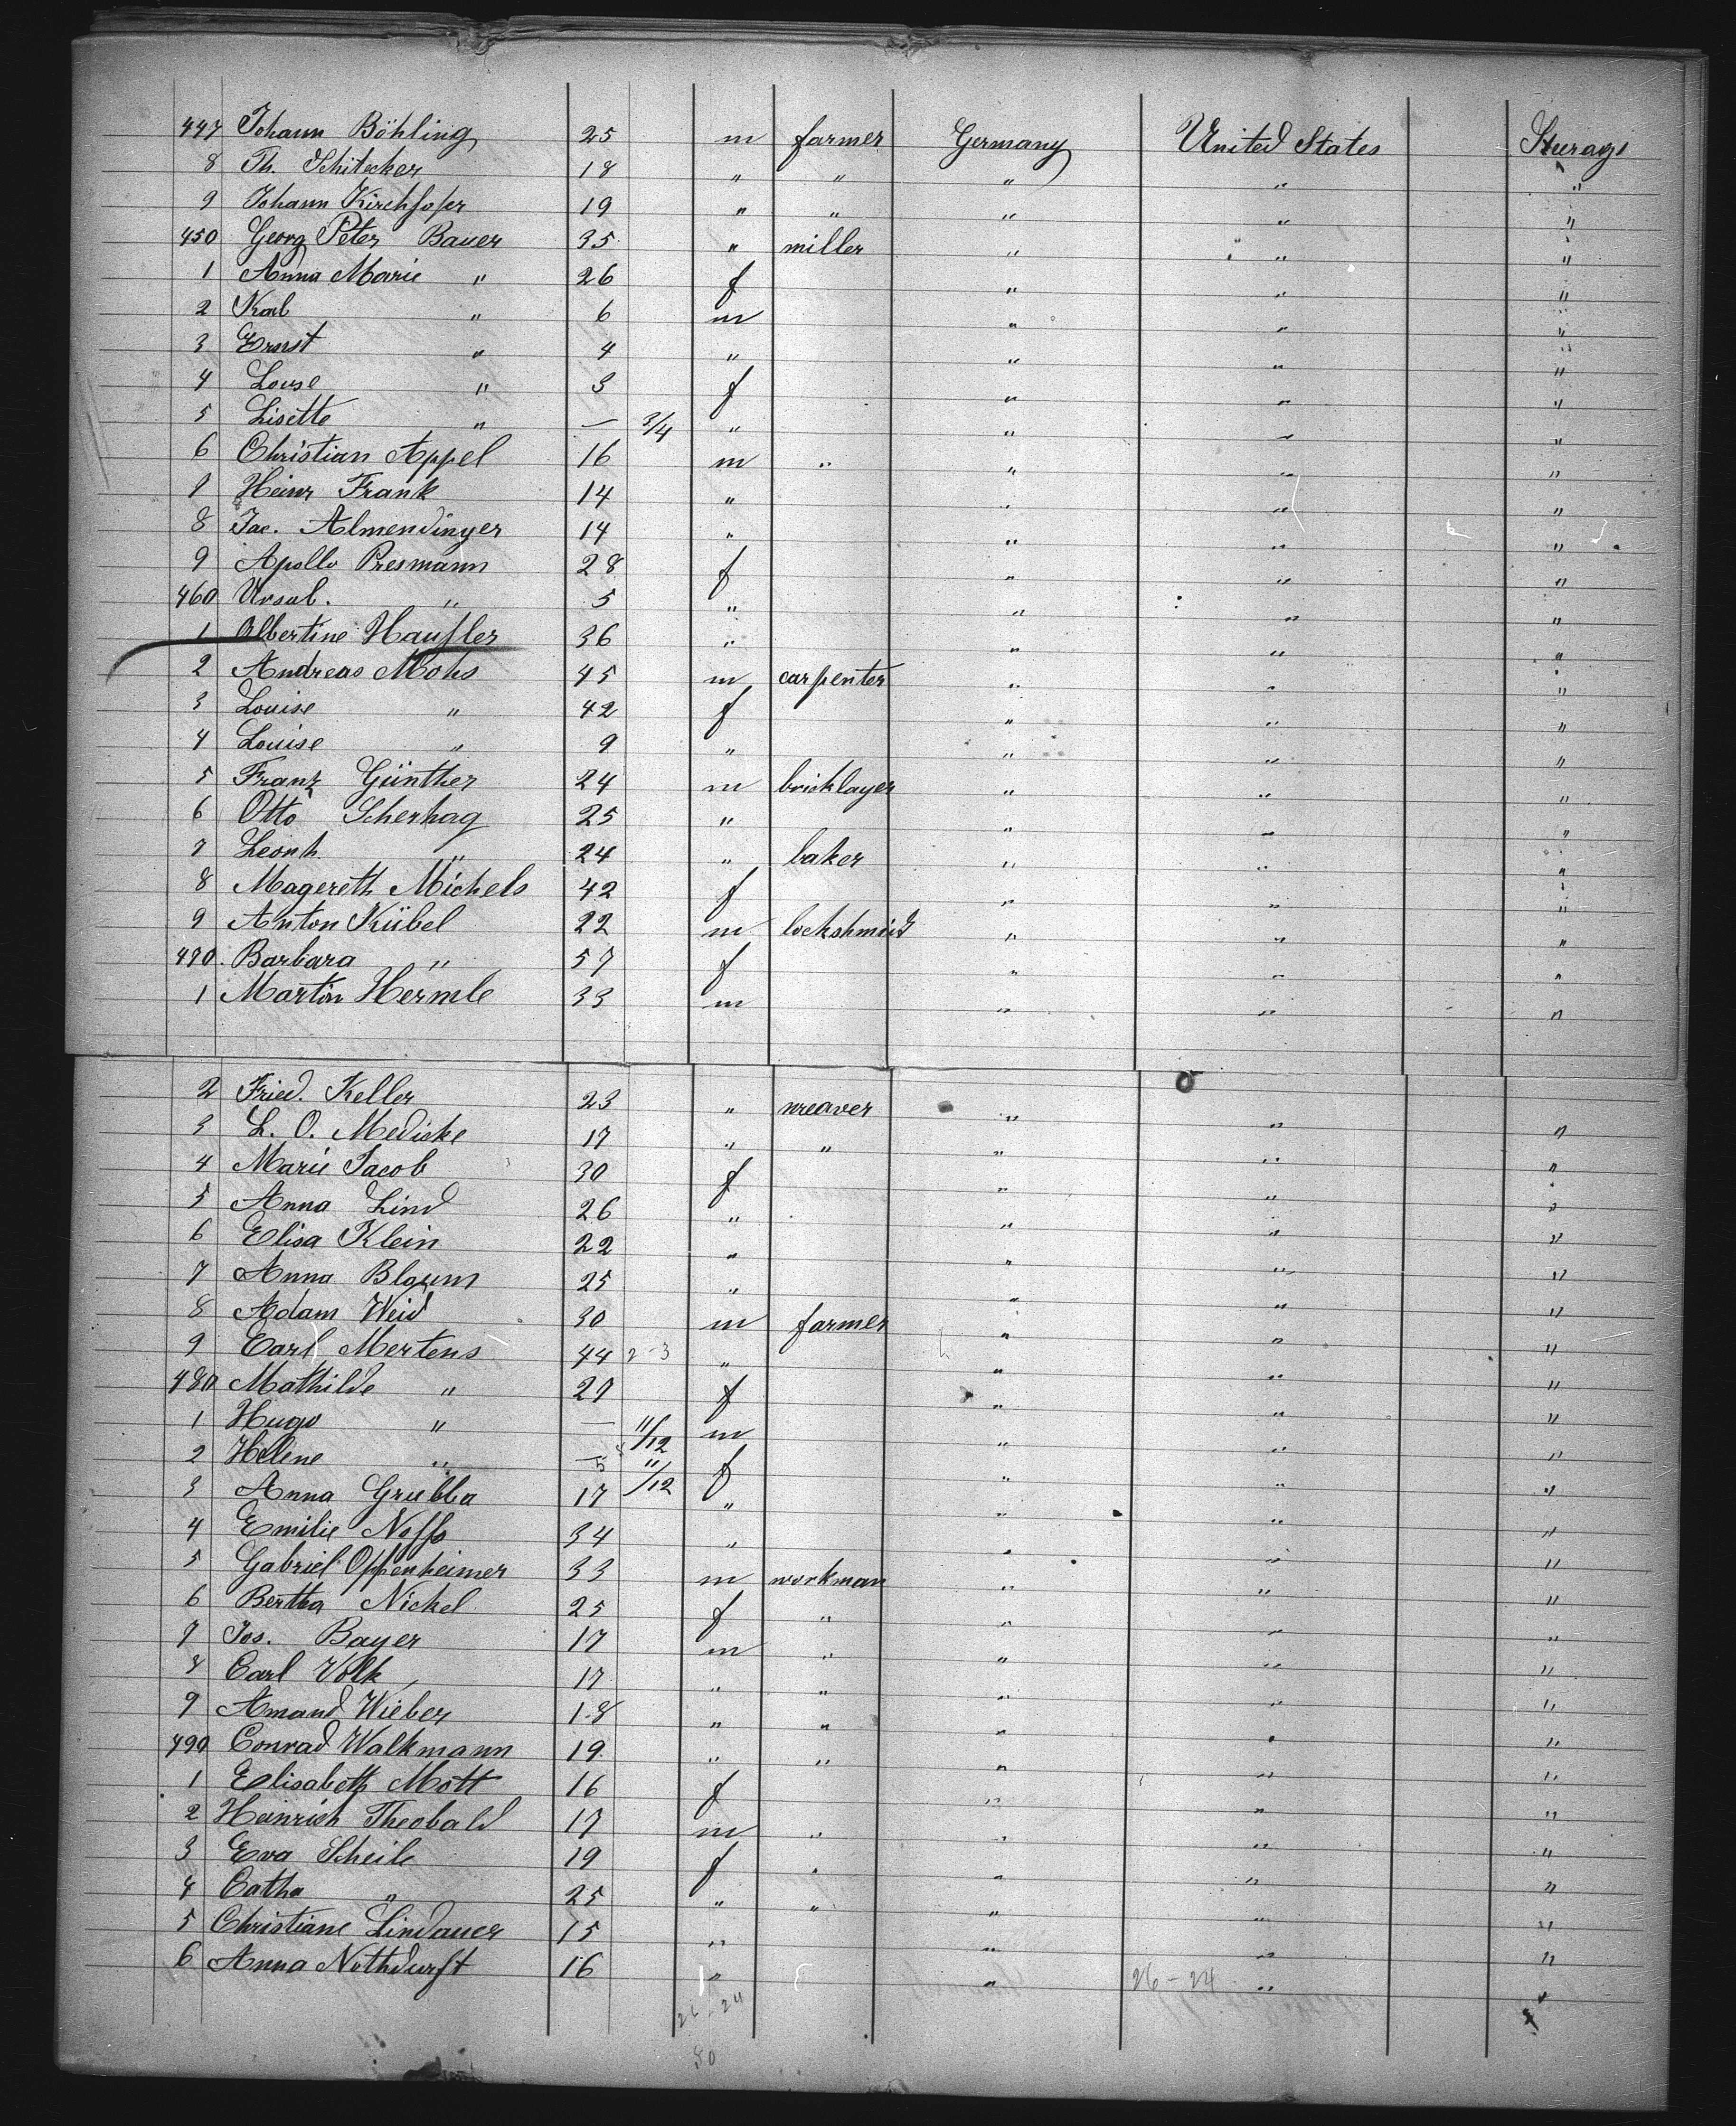 447 Johann Böhling 25 m farmer Germany United States Steerage
8 Th. Schitecker 18 " " " " "
9 Johann Kirchhofer 19 " " " " "
450 Georg Peter Bauer 35 " miller " " "
1 Anna Marie " 26 f " " "
2 Karl " 6 m " " "
3 Ernst " 4 " " " "
4 Louse " 3 f " " "
5 Lisette " — 3/4 " " " "
6 Christian Appel 16 m " " " "
7 Heinr Frank 14 " " " "
8 Jac. Almendinger 14 " " " "
9 Apollo Presmann 28 f " " "
460 Ursul. " 5 " " " "
1 Albertine Haufler 36 " " " "
2 Andreas Mohs 45 m carpenter " " "
3 Louise " 42 f " " "
4 Louise " 9 " " " "
5 Franz Günther 24 m bricklayer " " "
6 Otto Scherhag 25 " " " "
7 Leonh. " 24 " baker " " "
8 Magereth Michels 42 f " " "
9 Anton Kübel 22 m lockshmidt " " "
470. Barbara " 57 f " " "
1 Martin Hermle 33 m " " "
2 Fried. Keller 23 " weaver " " "
3 L. O. Medicke 17 " " " " "
4 Marie Jacob 30 f " " "
5 Anna Lind 26 " " " "
6 Elisa Klein 22 " " " "
7 Anna Blaum 25 " " " "
8 Adam Weid 30 m farmer " " "
9 Carl Mertens 44 2-3 " " " "
480 Mathilde " 27 f " " "
1 Hugo " — 11/12 m " " "
2 Helene " — 11/12 f " " "
3 Anna Grubba 17 " " " "
4 Emilie Noffs 34 " " " "
5 Gabriel Oppenheimer 33 m workman " " "
6 Bertha Nickel 25 f " " " "
7 Jos. Bayer 17 m " " " "
8 Carl Volk 17 " " " " "
9 Amand Wieber 18 " " " " "
490 Conrad Walkmann 19 " " " " "
1 Elisabeth Mott 16 f " " "
2 Heinrich Theobald 17 m " " " "
3 Eva Scheile 19 f " " " "
4 Catha " 25 " " " " "
5 Christiane Lindauer 15 " " " "
6 Anna Nothdurft 16 " " " "
26-24
26-24
50